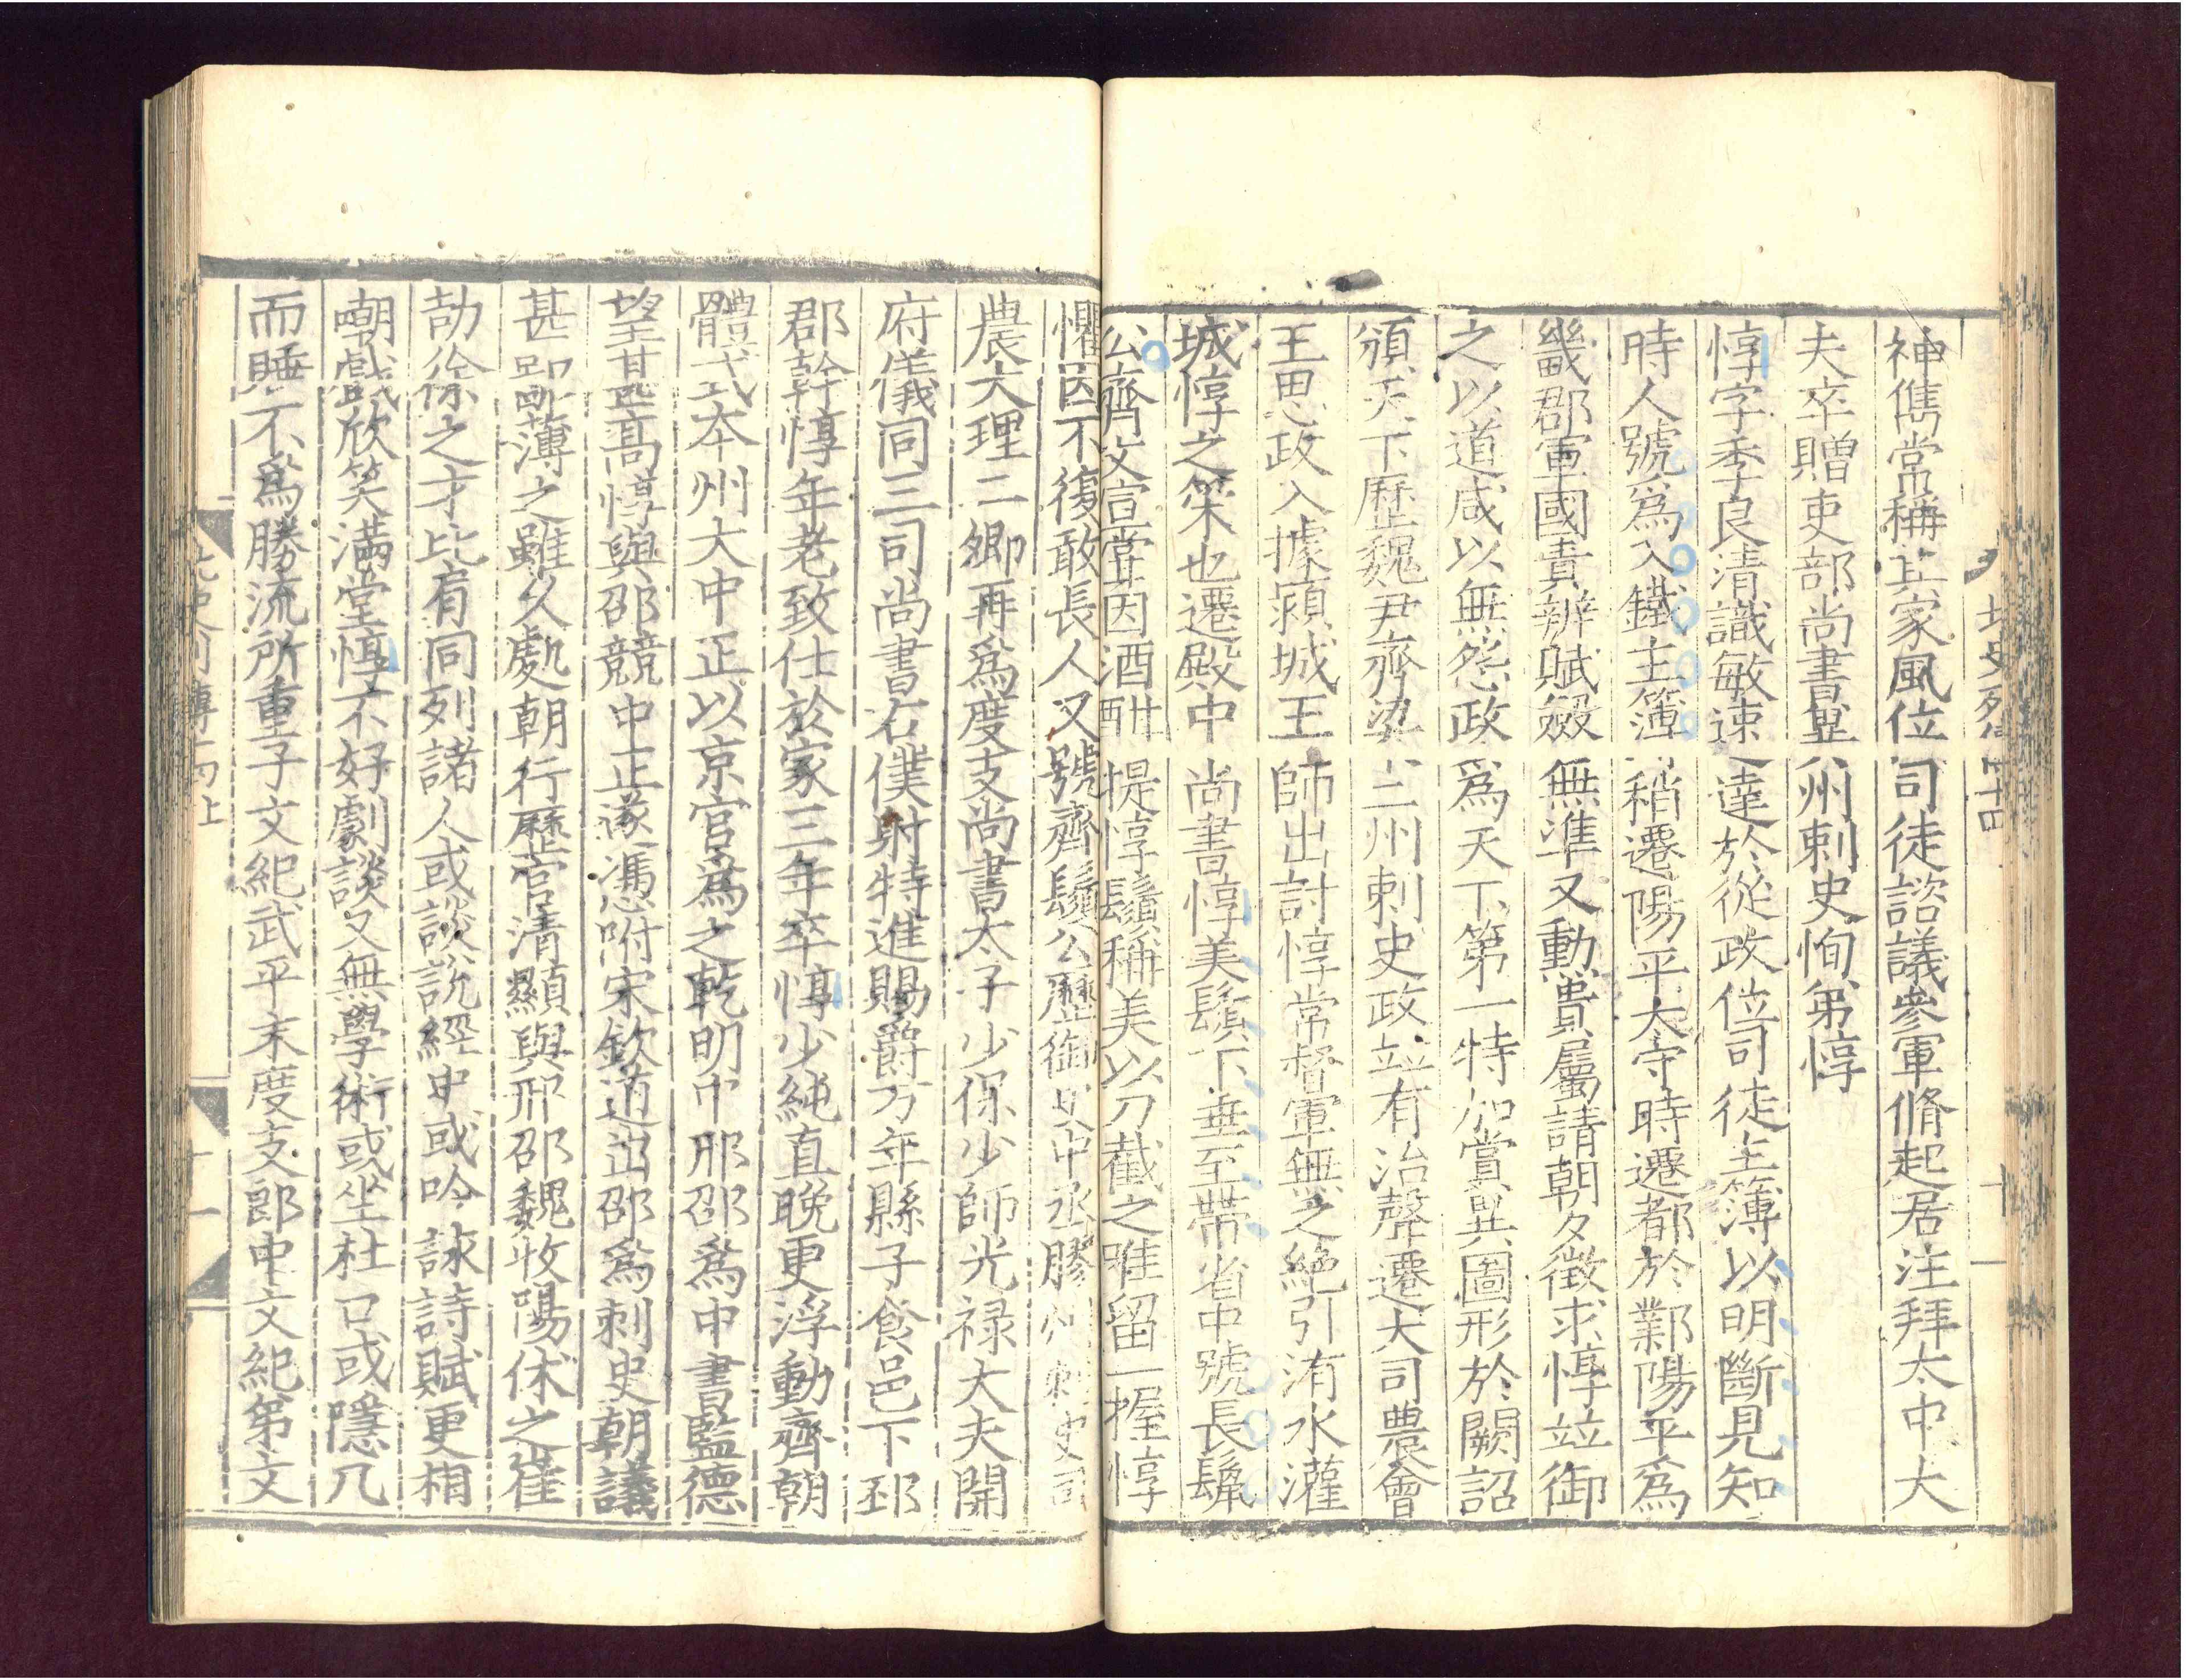 北史列傳十四
十
神儁常稱其家風位司徒諮議參軍脩起居注拜太中大
夫卒贈吏部尚書冀州刺史恂弟惇
惇字季良清識敏速達於從政位司徒主簿以明斷見知
時人號為入鐵主簿稍遷陽平太守時遷都於鄴陽平為
畿郡軍國責辦賦斂無準又勳貴屬請朝夕徵求惇竝御
之以道咸以無怨政為天下第一特加賞異圖形於闕詔
頒天下歷魏尹齊梁二州刺史政竝有治聲遷大司農會
王思政入據潁城王師出討惇常督軍無之絶引洧水灌
城惇之策也遷殿中尚書惇美鬚下垂至帶省中號長鬣
公齊文宣嘗因酒酣提惇鬚稱美以刀截之唯留一握惇
懼因不復敢長人又號齊鬚公歷御史中丞膠州刺史司
農大理二卿再為度支尚書太子少保少師光禄大夫開
府儀同三司尚書右僕射特進賜爵万年縣子食邑下邳
郡幹惇年老致仕於家三年卒惇少純直晚更浮動齊朝
體式本州大中正以京官為之乾明中邢邵為中書監德
望甚高惇與邵競中正遂馮附宋欽道出邵為刺史朝議
甚鄙薄之雖久處朝行歷官清顯與邢邵魏收陽休之崔
劼徐之才比肩同列諸人或談說經史或吟詠詩賦更相
嘲戲欣笑滿堂惇不好劇談又無學術或坐杜口或隱几
而睡不為勝流所重子文紀武平末度支郎中文紀弟文
北史列傳十四上
十一